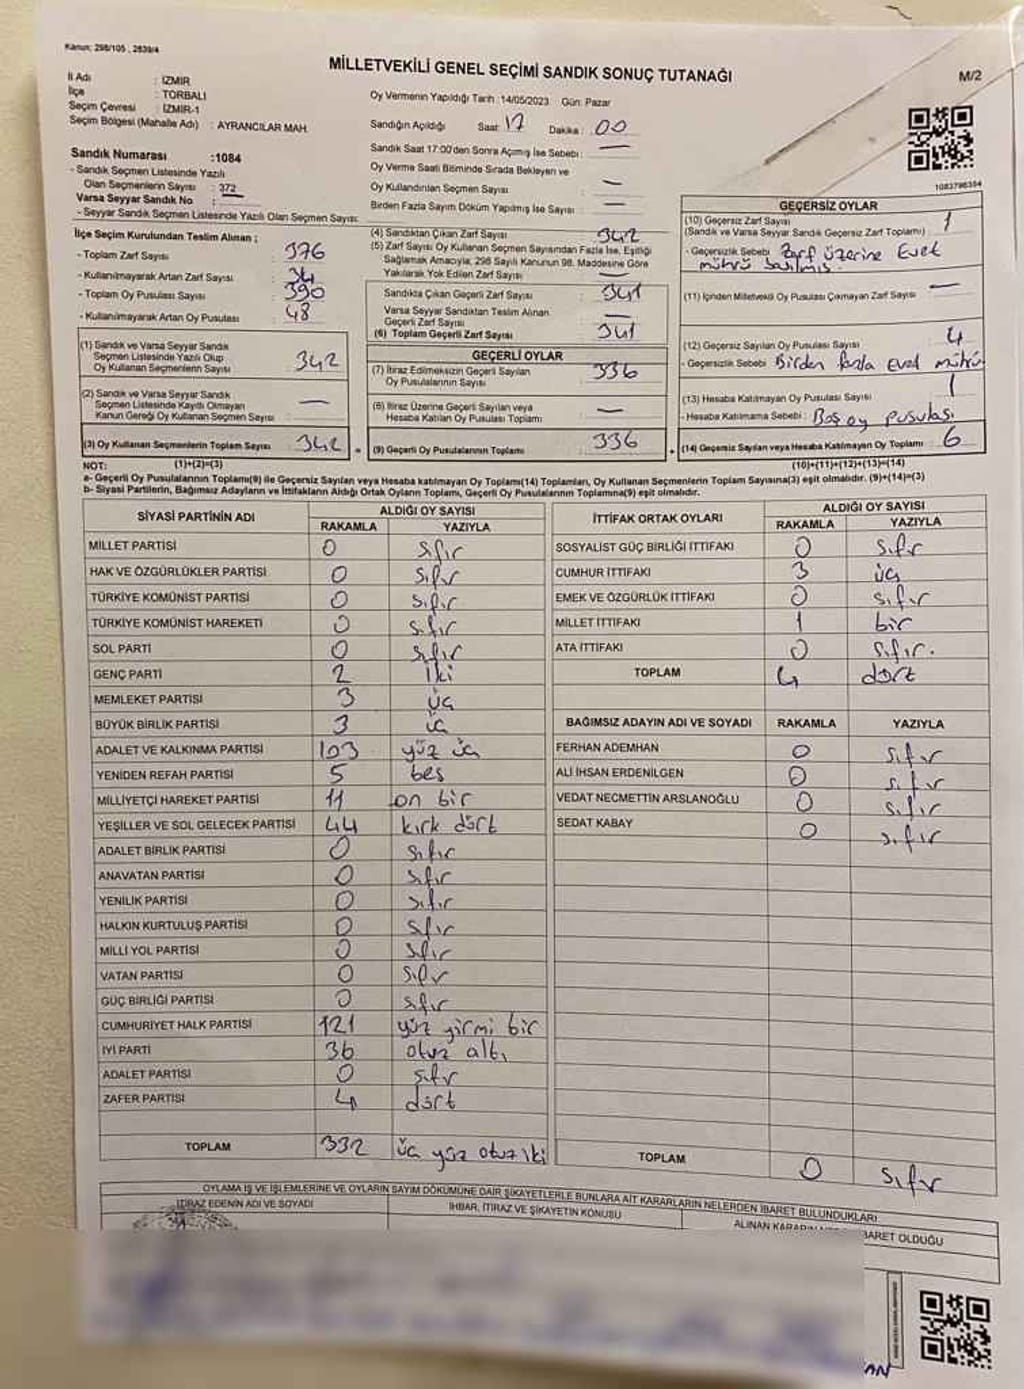 Kanun: 298/105 , 2839/4
MİLLETVEKİLİ GENEL SEÇİMİ SANDIK SONUÇ TUTANAĞI
M/2
İl Adı : İZMİR
İlçe : TORBALI
Seçim Çevresi : İZMİR-1
Seçim Bölgesi (Mahalle Adı) : AYRANCILAR MAH.
Oy Vermenin Yapıldığı Tarih : 14/05/2023 Gün: Pazar
Sandığın Açıldığı Saat: 17 Dakika : 00
Sandık Saat 17:00'den Sonra Açılmış İse Sebebi : —
Oy Verme Saati Bitiminde Sırada Bekleyen ve
Oy Kullandırılan Seçmen Sayısı : —
Birden Fazla Sayım Döküm Yapılmış İse Sayısı : —
1083796354
Sandık Numarası :1084
- Sandık Seçmen Listesinde Yazılı
Olan Seçmenlerin Sayısı : 372
Varsa Seyyar Sandık No :
- Seyyar Sandık Seçmen Listesinde Yazılı Olan Seçmen Sayısı:
İlçe Seçim Kurulundan Teslim Alınan ;
- Toplam Zarf Sayısı : 376
- Kullanılmayarak Artan Zarf Sayısı : 34
- Toplam Oy Pusulası Sayısı : 390
- Kullanılmayarak Artan Oy Pusulası : 48
(1) Sandık ve Varsa Seyyar Sandık
Seçmen Listesinde Yazılı Olup
Oy Kullanan Seçmenlerin Sayısı : 342
(2) Sandık ve Varsa Seyyar Sandık
Seçmen Listesinde Kayıtlı Olmayan
Kanun Gereği Oy Kullanan Seçmen Sayısı : —
(3) Oy Kullanan Seçmenlerin Toplam Sayısı : 342
(4) Sandıktan Çıkan Zarf Sayısı : 342
(5) Zarf Sayısı Oy Kullanan Seçmen Sayısından Fazla İse, Eşitliği
Sağlamak Amacıyla; 298 Sayılı Kanunun 98. Maddesine Göre
Yakılarak Yok Edilen Zarf Sayısı :
Sandıkta Çıkan Geçerli Zarf Sayısı : 341
Varsa Seyyar Sandıktan Teslim Alınan
Geçerli Zarf Sayısı : —
(6) Toplam Geçerli Zarf Sayısı : 341
GEÇERLİ OYLAR
(7) İtiraz Edilmeksizin Geçerli Sayılan
Oy Pusulalarının Sayısı : 336
(8) İtiraz Üzerine Geçerli Sayılan veya
Hesaba Katılan Oy Pusulası Toplamı : —
(9) Geçerli Oy Pusulalarının Toplamı : 336
GEÇERSİZ OYLAR
(10) Geçersiz Zarf Sayısı : 1
(Sandık ve Varsa Seyyar Sandık Geçersiz Zarf Toplamı)
- Geçersizlik Sebebi : Zarf üzerine Evet
mührü basılmış.
(11) İçinden Milletvekili Oy Pusulası Çıkmayan Zarf Sayısı : —
(12) Geçersiz Sayılan Oy Pusulası Sayısı : 4
- Geçersizlik Sebebi : Birden fazla evet mührü
(13) Hesaba Katılmayan Oy Pusulası Sayısı : 1
- Hesaba Katılmama Sebebi : Boş oy pusulası
(14) Geçersiz Sayılan veya Hesaba Katılmayan Oy Toplamı : 6
NOT: (1)+(2)=(3)
(10)+(11)+(12)+(13)=(14)
a- Geçerli Oy Pusulalarının Toplamı(9) ile Geçersiz Sayılan veya Hesaba katılmayan Oy Toplamı(14) Toplamları, Oy Kullanan Seçmenlerin Toplam Sayısına(3) eşit olmalıdır. (9)+(14)=(3)
b- Siyasi Partilerin, Bağımsız Adayların ve İttifakların Aldığı Ortak Oyların Toplamı, Geçerli Oy Pusulalarının Toplamına(9) eşit olmalıdır.
SİYASİ PARTİNİN ADI ALDIĞI OY SAYISI
RAKAMLA YAZIYLA
MİLLET PARTİSİ 0 sıfır
HAK VE ÖZGÜRLÜKLER PARTİSİ 0 sıfır
TÜRKİYE KOMÜNİST PARTİSİ 0 sıfır
TÜRKİYE KOMÜNİST HAREKETİ 0 sıfır
SOL PARTİ 0 sıfır
GENÇ PARTİ 2 iki
MEMLEKET PARTİSİ 3 üç
BÜYÜK BİRLİK PARTİSİ 3 üç
ADALET VE KALKINMA PARTİSİ 103 yüz üç
YENİDEN REFAH PARTİSİ 5 beş
MİLLİYETÇİ HAREKET PARTİSİ 11 on bir
YEŞİLLER VE SOL GELECEK PARTİSİ 44 kırk dört
ADALET BİRLİK PARTİSİ 0 sıfır
ANAVATAN PARTİSİ 0 sıfır
YENİLİK PARTİSİ 0 sıfır
HALKIN KURTULUŞ PARTİSİ 0 sıfır
MİLLİ YOL PARTİSİ 0 sıfır
VATAN PARTİSİ 0 sıfır
GÜÇ BİRLİĞİ PARTİSİ 0 sıfır
CUMHURİYET HALK PARTİSİ 121 yüz yirmi bir
İYİ PARTİ 36 otuz altı
ADALET PARTİSİ 0 sıfır
ZAFER PARTİSİ 4 dört
TOPLAM 332 üç yüz otuz iki
İTTİFAK ORTAK OYLARI ALDIĞI OY SAYISI
RAKAMLA YAZIYLA
SOSYALİST GÜÇ BİRLİĞİ İTTİFAKI 0 sıfır
CUMHUR İTTİFAKI 3 üç
EMEK VE ÖZGÜRLÜK İTTİFAKI 0 sıfır
MİLLET İTTİFAKI 1 bir
ATA İTTİFAKI 0 sıfır.
TOPLAM 4 dört
BAĞIMSIZ ADAYIN ADI VE SOYADI RAKAMLA YAZIYLA
FERHAN ADEMHAN 0 sıfır
ALİ İHSAN ERDENİLGEN 0 sıfır
VEDAT NECMETTİN ARSLANOĞLU 0 sıfır
SEDAT KABAY 0 sıfır
TOPLAM 0 sıfır
OYLAMA İŞ VE İŞLEMLERİNE VE OYLARIN SAYIM DÖKÜMÜNE DAİR ŞİKAYETLERLE BUNLARA AİT KARARLARIN NELERDEN İBARET BULUNDUKLARI
İTİRAZ EDENİN ADI VE SOYADI
İHBAR, İTİRAZ VE ŞİKAYETİN KONUSU
ALINAN KARARIN İBARET OLDUĞU